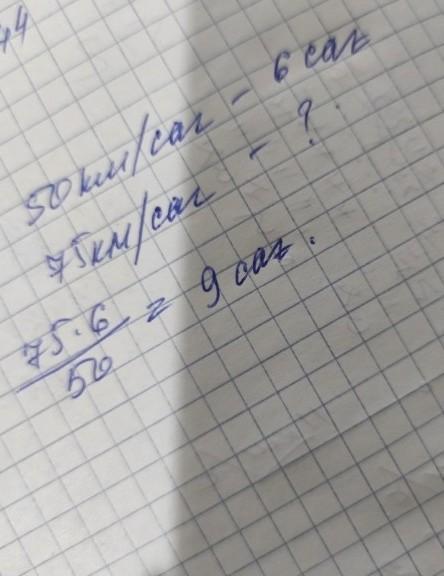 44
50 км/саг - 6 саг
75 км/саг - ?
75·6/50 = 9 саг.